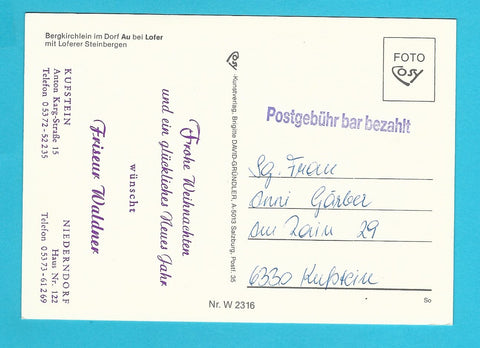 Bergkirchlein im Dorf Au bei Lofer
mit Loferer Steinbergen
Frohe Weihnachten
und ein glückliches Neues Jahr
wünscht
Friseur Waldner
KUFSTEIN
Anton Karg-Straße 15
Telefon 05372-52235
NIEDERNDORF
Haus Nr. 122
Telefon 05373-61269
Cosy
-Kunstverlag, Brigitte DAVID-GRÜNDLER, A-5013 Salzburg, Postf. 35
FOTO
Cosy
Postgebühr bar bezahlt
Sg. Frau
Anni Gärber
Am Rain 29
6330 Kufstein
Nr. W 2316
So